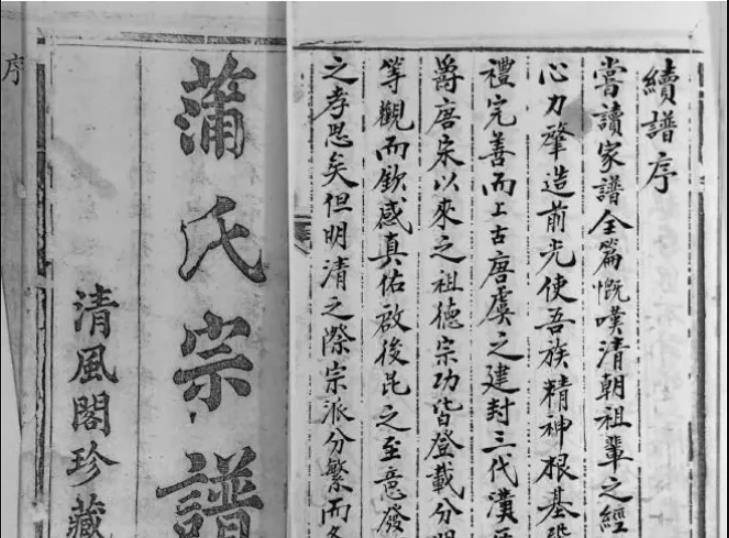 續譜序
嘗讀家譜全篇慨嘆清朝祖輩之經
心力肇造前光使吾族精神根基
禮完善而上古唐虞之建封三代漢
爵唐宋以來之祖德宗功皆登載分明
等觀而欽感真佑啟後昆之至意發
之孝思矣但明清之際宗派分繁而
蒲氏宗譜
清風閣珍藏
序